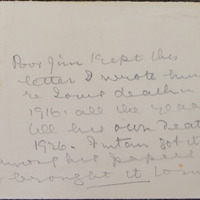 Poor Jim kept this
letter I wrote him
re Tom's death
1916. all the yea
till his own Deat
1926. got it
among his papers
brought it to